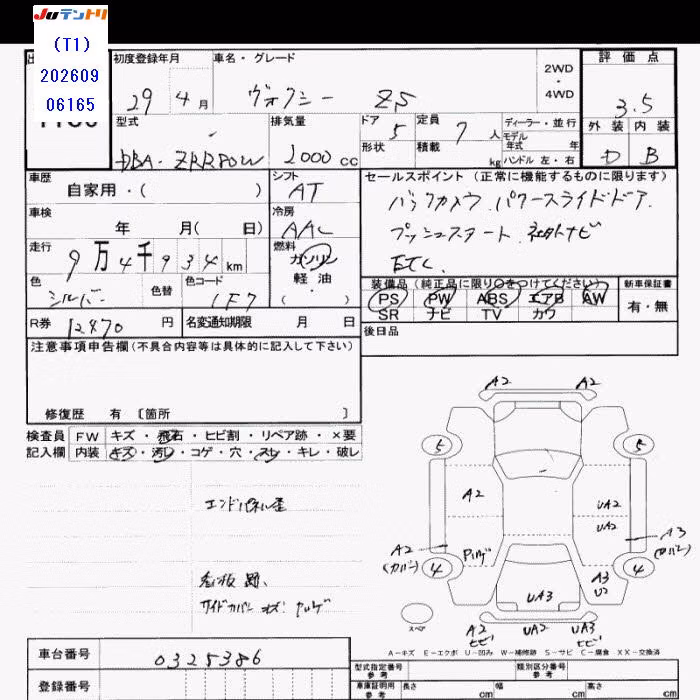 JUテントリ
(T1)
202609
06165
初度登録年月
29 4月
車名・グレード
ヴォクシー ZS
2WD
・
4WD
評価点
3.5
外装 内装
D B
型式
DBA-ZRR80W
排気量
2000cc
ドア 5
形状
定員 7人
積載 kg
ディーラー・並行
モデル
年式 年
ハンドル 左・右
車歴
自家用・( )
シフト
AT
車検
年 月( 日)
冷房
AAC
走行
9万4千934km
燃料
ガソリン
軽油
・
( )
色
シルバー
色替
色コード
1F7
R券 12470円
名変通知期限 月 日
セールスポイント(正常に機能するものに限ります)
バックカメラ.パワースライドドア.
プッシュスタート.社外ナビ
ETC.
装備品(純正品に限り○をつけてください)
PS PW ABS エアB AW
SR ナビ TV カワ
新車保証書
有・無
後日品
注意事項申告欄(不具合内容等は具体的に記入して下さい)
修復歴 有 〔箇所 〕
検査員
記入欄
FW キズ・飛石・ヒビ割・リペア跡・×要
内装 キズ・汚レ・コゲ・穴・スレ・キレ・破レ
エンドパネル歪
看板跡.
ワイドカバー キズ ハゲ
A2 A2
5 5
A2 UA2
UA2
A2
(カバー)
A3
(カバー)
4 4
A3
U2
UA3
スペア
A2
ヒビ
UA2
UA3
ヒビ
A-キズ E-エクボ U-凹み W-補修跡 S-サビ C-腐食 XX-交換済
車台番号 0325386
登録番号
型式指定番号
参考
類別区分番号
参考
車庫証明用
参考
長さ cm 幅 cm 高さ cm